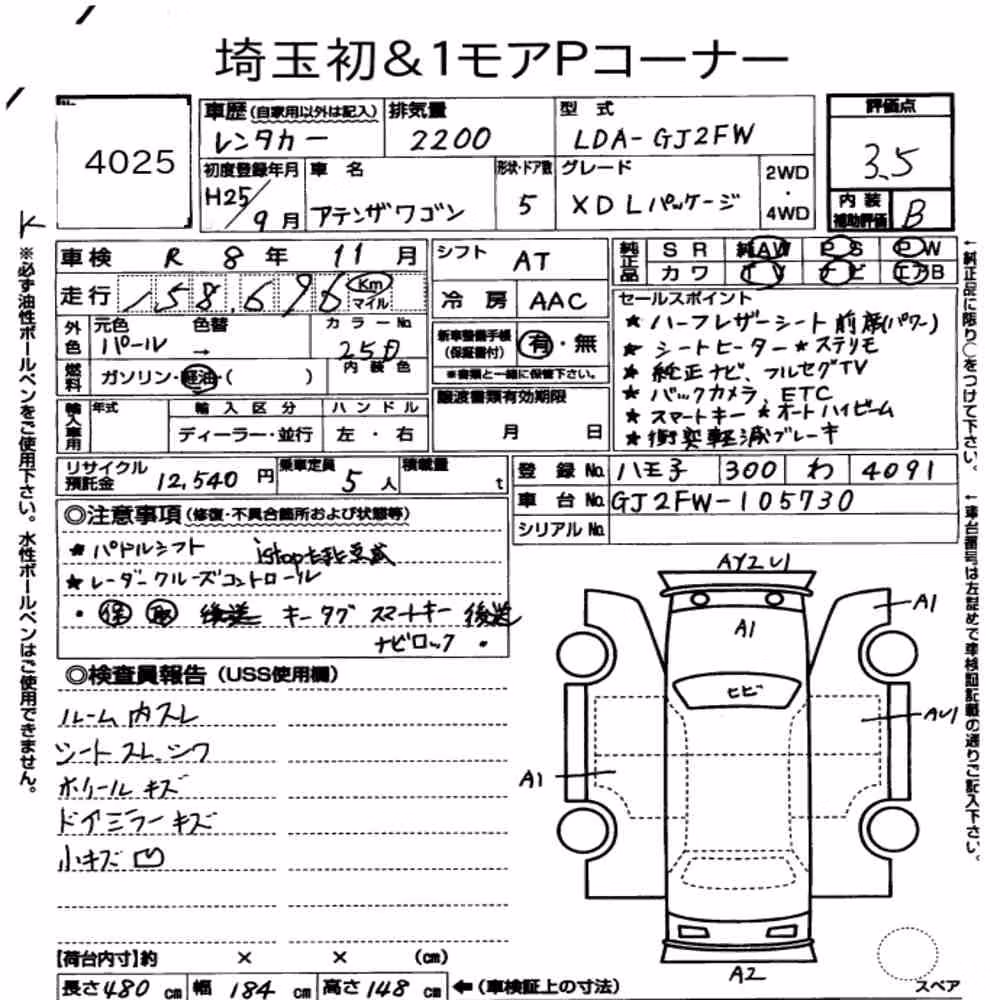 埼玉初&1モアPコーナー
4025
車歴(自家用以外は記入) 排気量 型式
レンタカー 2200 LDA-GJ2FW
初度登録年月 車名 形状・ドア数 グレード 2WD・4WD
H25/9月 アテンザワゴン 5 XD Lパッケージ
評価点
3.5
内装補助評価 B
車検 R 8年 11月
走行 158,696 Km マイル
外色 元色 色替 カラーNo.
パール → 25D
内装色
燃料 ガソリン・軽油・( )
輸入車用 年式 輸入区分 ハンドル
ディーラー・並行 左・右
シフト AT
冷房 AAC
新車整備手帳(保証書付) 有・無
※書類と一緒に保管下さい。
譲渡書類有効期限
月 日
純正品 SR 純AW PS PW
カワ TV ナビ エアB
セールスポイント
★ ハーフレザーシート 前席(パワー)
★ シートヒーター ★ ステリモ
★ 純正ナビ、フルセグTV
★ バックカメラ、ETC
★ スマートキー ★ オートハイビーム
★ 衝突軽減ブレーキ
リサイクル預託金 12,540円 乗車定員 5人 積載量 t
登録No. 八王子 300 わ 4091
車台No. GJ2FW-105730
シリアルNo.
◎注意事項(修復・不具合箇所および状態等)
★ パドルシフト istop
★ レーダークルーズコントロール
・ 保 取 後送 キータグ スマートキー 後送
ナビロック・
◎検査員報告(USS使用欄)
ルーム内スレ
シートスレ、シワ
ホイールキズ
ドアミラーキズ
小キズ凹
AY2 U1
A1
A1
ヒビ
AU1
A1
A2
スペア
【荷台内寸】約 × × (cm)
長さ480cm 幅184cm 高さ148cm ←(車検証上の寸法)
※必ず油性ボールペンをご使用下さい。水性ボールペンはご使用できません。
←純正品に限り○をつけて下さい。
←車台番号は左詰めで車検証記載の通りご記入下さい。